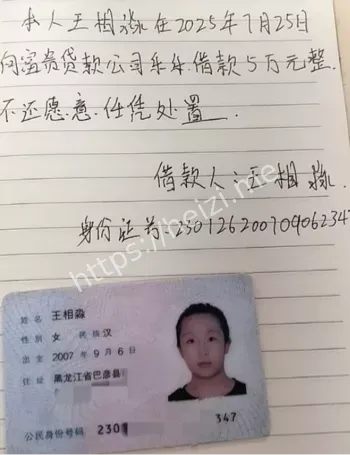 本人王相淼在2025年7月25日
向富贵贷款公司乐乐借款5万元整.
不还愿意.任凭处置.
借款人:王相淼.
身份证号:
https://heizi.me
姓名 王相淼
性别 女 民族 汉
出生 2007年9月6日
住址 黑龙江省巴彦县
公民身份号码